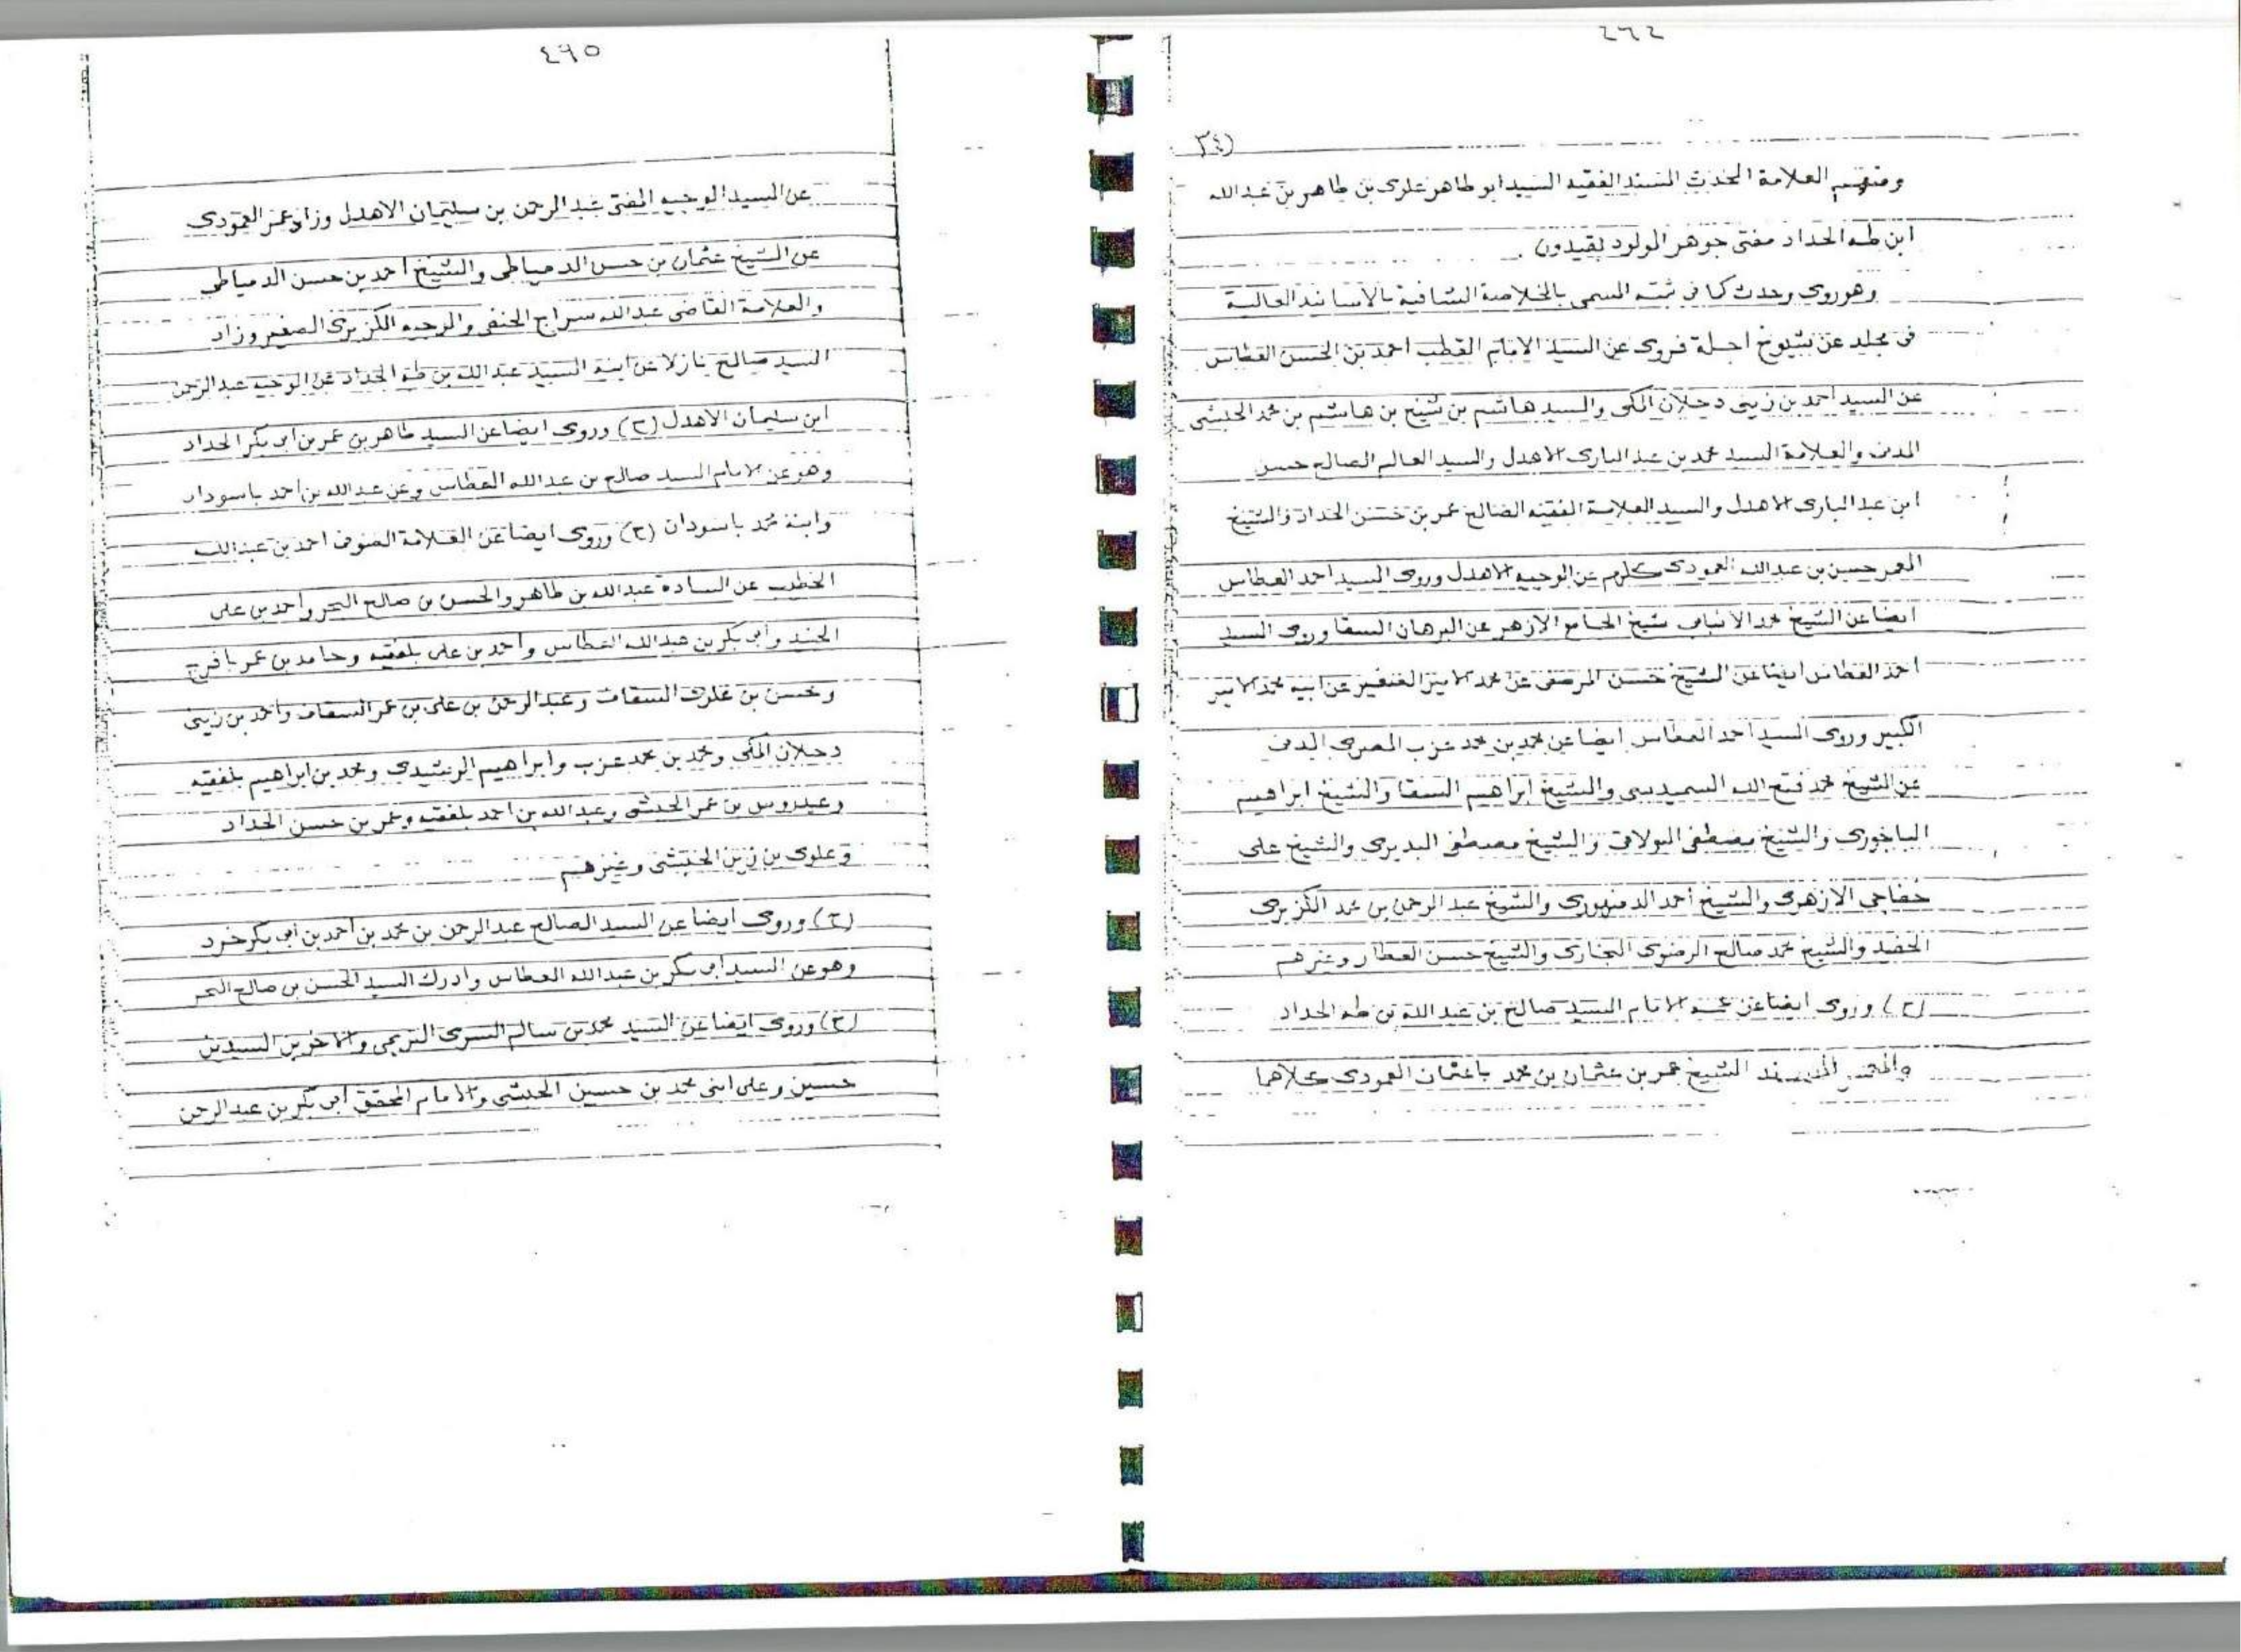 (٣٤
ومنهم العلامة المحدث المسند الفقيه السيد ابو طاهر علوى بن طاهر بن عبدالله
ابن طه الحداد مفتى جوهر المولود بقيدون .
وهو روى وحدث كما فى ثبته المسمى بالخلاصة الشافية بالاسانيد العالية
فى مجلد عن شيوخ اجلة فروى عن السيد الامام القطب احمد بن الحسن العطاس
عن السيد احمد بن زينى دحلان المكى والسيد هاشم بن شيخ بن هاشم بن محمد الحبشى
المدنى والعلامة السيد محمد بن عبد البارى الاهدل والسيد العالم الصالح حسن
ابن عبد البارى الاهدل والسيد العلامة الفقيه الصالح عمر بن حسن الحداد والشيخ
المعمر حسن بن عبدالله العمودى كلهم عن الوجيه الاهدل وروى السيد احمد العطاس
ايضا عن الشيخ محمد الانبابى شيخ الجامع الازهر عن البرهان السقا وروى السيد
احمد العطاس ايضا عن الشيخ حسن المرصفى عن محمد الامير الصغير عن ابيه محمد الامير
الكبير وروى السيد احمد العطاس ايضا عن محمد بن محمد عزب المصرى المدنى
عن الشيخ محمد فتح الله السميديسى والشيخ ابراهيم السقا والشيخ ابراهيم
الباجورى والشيخ مصطفى البولاقى والشيخ مصطفى البديرى والشيخ على
خفاجى الازهرى والشيخ أحمد الدمنهورى والشيخ عبد الرحمن بن محمد الكزبرى
الحفيد والشيخ محمد صالح الرضوى البخارى والشيخ حسن العطار وغيرهم
(ح) وروى ايضا عن عمه الامام السيد صالح بن عبد الله بن طه الحداد
والمعمر المسند الشيخ عمر بن عثمان بن محمد باعثمان العمودى كلاهما
٤٩٥
عن السيد الوجيه المفتى عبد الرحمن بن سليمان الاهدل وزاد عمر العمودى
عن الشيخ عثمان بن حسن الدمياطى والشيخ احمد بن حسن الدمياطى
والعلامة القاضى عبدالله سراج الحنفى والوجيه الكزبرى الصغير وزاد
السيد صالح نازلا عن ابنه السيد عبد الله بن طه الحداد عن الوجيه عبد الرحمن
ابن سليمان الاهدل (ح) وروى ايضا عن السيد طاهر بن عمر بن أبى بكر الحداد
وهو عن الامام السيد صالح بن عبدالله العطاس وعن عبدالله بن احمد باسودان
وابنه محمد باسودان (ح) وروى ايضا عن العلامة الصوفى احمد بن عبدالله
الخطيب عن السادة عبدالله بن طاهر والحسن بن صالح البحر وأحمد بن على
الجنيد وأبى بكر بن عبدالله العطاس وأحمد بن على بلفقيه وحامد بن عمر بافرج
وحسن بن علوى السقاف وعبد الرحمن بن على بن عمر السقاف وأحمد بن زينى
دحلان المكى ومحمد بن محمد عزب وابراهيم الرشيدى ومحمد بن ابراهيم بلفقيه
وعيدروس بن عمر الحبشى وعبدالله بن احمد بلفقيه وعمر بن حسن الحداد
وعلوى بن زين الحبشى وغيرهم
(ح) وروى ايضا عن السيد الصالح عبد الرحمن بن محمد بن أحمد بن أبى بكر خرد
وهو عن السيد ابى بكر بن عبدالله العطاس وادرك السيد الحسن بن صالح البحر
(ح) وروى ايضا عن السيد محمد بن سالم السرى التريمى والاخوين السيدين
حسين وعلى ابنى محمد بن حسين الحبشى والامام المحقق أبى بكر بن عبد الرحمن